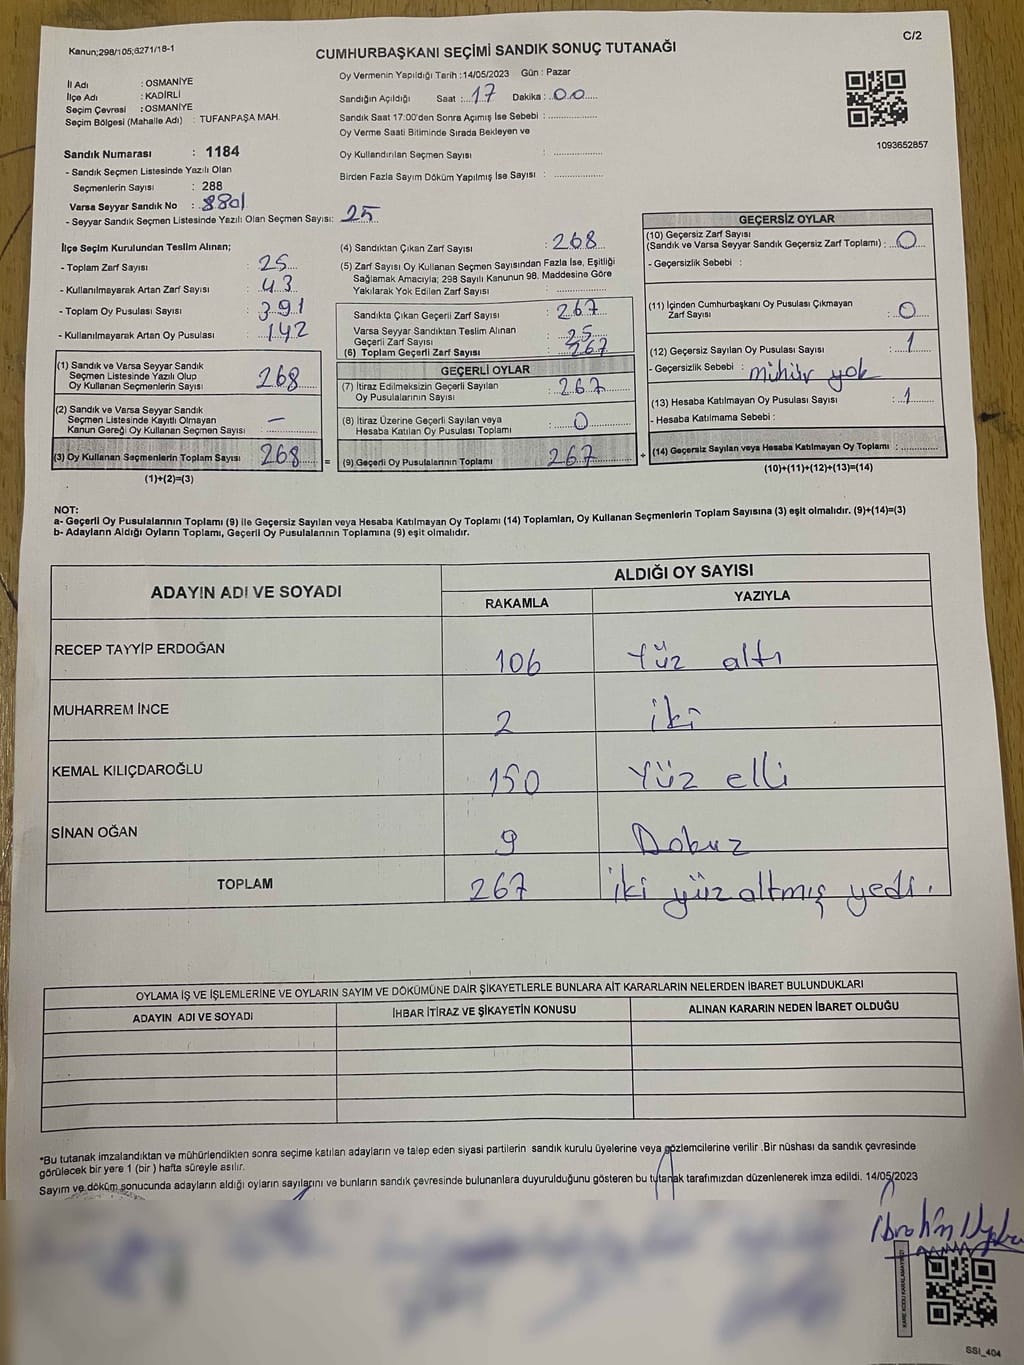 Kanun;298/105;6271/18-1
CUMHURBAŞKANI SEÇİMİ SANDIK SONUÇ TUTANAĞI
C/2
İl Adı : OSMANİYE
İlçe Adı : KADİRLİ
Seçim Çevresi : OSMANİYE
Seçim Bölgesi (Mahalle Adı) : TUFANPAŞA MAH.
Oy Vermenin Yapıldığı Tarih :14/05/2023 Gün : Pazar
Sandığın Açıldığı Saat :...17 Dakika :..00.....
Sandık Saat 17:00'den Sonra Açımış İse Sebebi : ................
Oy Verme Saati Bitiminde Sırada Bekleyen ve
Oy Kullandırılan Seçmen Sayısı : ................
Birden Fazla Sayım Döküm Yapılmış İse Sayısı : ................
1093652857
Sandık Numarası : 1184
- Sandık Seçmen Listesinde Yazılı Olan
Seçmenlerin Sayısı : 288
Varsa Seyyar Sandık No : 8801
- Seyyar Sandık Seçmen Listesinde Yazılı Olan Seçmen Sayısı: 25
İlçe Seçim Kurulundan Teslim Alınan;
- Toplam Zarf Sayısı : 25
- Kullanılmayarak Artan Zarf Sayısı : 43
- Toplam Oy Pusulası Sayısı : 391
- Kullanılmayarak Artan Oy Pusulası : 142
(1) Sandık ve Varsa Seyyar Sandık
Seçmen Listesinde Yazılı Olup
Oy Kullanan Seçmenlerin Sayısı : 268
(2) Sandık ve Varsa Seyyar Sandık
Seçmen Listesinde Kayıtlı Olmayan
Kanun Gereği Oy Kullanan Seçmen Sayısı : —
(3) Oy Kullanan Seçmenlerin Toplam Sayısı : 268 =
(1)+(2)=(3)
(4) Sandıktan Çıkan Zarf Sayısı : 268
(5) Zarf Sayısı Oy Kullanan Seçmen Sayısından Fazla İse, Eşitliği
Sağlamak Amacıyla; 298 Sayılı Kanunun 98. Maddesine Göre
Yakılarak Yok Edilen Zarf Sayısı : ................
Sandıkta Çıkan Geçerli Zarf Sayısı : 267
Varsa Seyyar Sandıktan Teslim Alınan
Geçerli Zarf Sayısı : 25
(6) Toplam Geçerli Zarf Sayısı : 267
GEÇERLİ OYLAR
(7) İtiraz Edilmeksizin Geçerli Sayılan
Oy Pusulalarının Sayısı : 267
(8) İtiraz Üzerine Geçerli Sayılan veya
Hesaba Katılan Oy Pusulası Toplamı : 0
(9) Geçerli Oy Pusulalarının Toplamı 267 +
GEÇERSİZ OYLAR
(10) Geçersiz Zarf Sayısı
(Sandık ve Varsa Seyyar Sandık Geçersiz Zarf Toplamı) : 0
- Geçersizlik Sebebi :
(11) İçinden Cumhurbaşkanı Oy Pusulası Çıkmayan
Zarf Sayısı : 0
(12) Geçersiz Sayılan Oy Pusulası Sayısı : 1
- Geçersizlik Sebebi : mühür yok
(13) Hesaba Katılmayan Oy Pusulası Sayısı : 1
- Hesaba Katılmama Sebebi :
(14) Geçersiz Sayılan veya Hesaba Katılmayan Oy Toplamı : ............
(10)+(11)+(12)+(13)=(14)
NOT:
a- Geçerli Oy Pusulalarının Toplamı (9) ile Geçersiz Sayılan veya Hesaba Katılmayan Oy Toplamı (14) Toplamları, Oy Kullanan Seçmenlerin Toplam Sayısına (3) eşit olmalıdır. (9)+(14)=(3)
b- Adayların Aldığı Oyların Toplamı, Geçerli Oy Pusulalarının Toplamına (9) eşit olmalıdır.
ADAYIN ADI VE SOYADI
ALDIĞI OY SAYISI
RAKAMLA YAZIYLA
RECEP TAYYİP ERDOĞAN 106 Yüz altı
MUHARREM İNCE 2 iki
KEMAL KILIÇDAROĞLU 150 Yüz elli
SİNAN OĞAN 9 Dokuz
TOPLAM 267 iki yüz altmış yedi.
OYLAMA İŞ VE İŞLEMLERİNE VE OYLARIN SAYIM VE DÖKÜMÜNE DAİR ŞİKAYETLERLE BUNLARA AİT KARARLARIN NELERDEN İBARET BULUNDUKLARI
ADAYIN ADI VE SOYADI İHBAR İTİRAZ VE ŞİKAYETİN KONUSU ALINAN KARARIN NEDEN İBARET OLDUĞU
*Bu tutanak imzalandıktan ve mühürlendikten sonra seçime katılan adayların ve talep eden siyasi partilerin sandık kurulu üyelerine veya gözlemcilerine verilir .Bir nüshası da sandık çevresinde
görülecek bir yere 1 (bir ) hafta süreyle asılır.
Sayım ve döküm sonucunda adayların aldığı oyların sayılarını ve bunların sandık çevresinde bulunanlara duyurulduğunu gösteren bu tutanak tarafımızdan düzenlenerek imza edildi. 14/05/2023
SSI_404